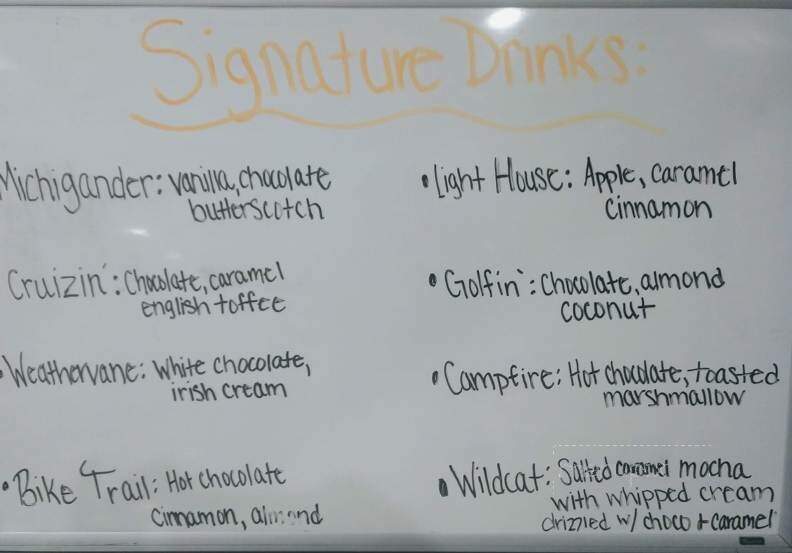 Signature Drinks:
Michigander: vanilla, chocolate
butterscotch
Cruizin': Chocolate, caramel
english toffee
• Weathervane: White chocolate,
irish cream
• Bike Trail: Hot chocolate
cinnamon, almond
• Light House: Apple, caramel
cinnamon
• Golfin': Chocolate, almond
coconut
• Campfire: Hot chocolate, toasted
marshmallow
• Wildcat: Salted caramel mocha
with whipped cream
drizzled w/ choco + caramel